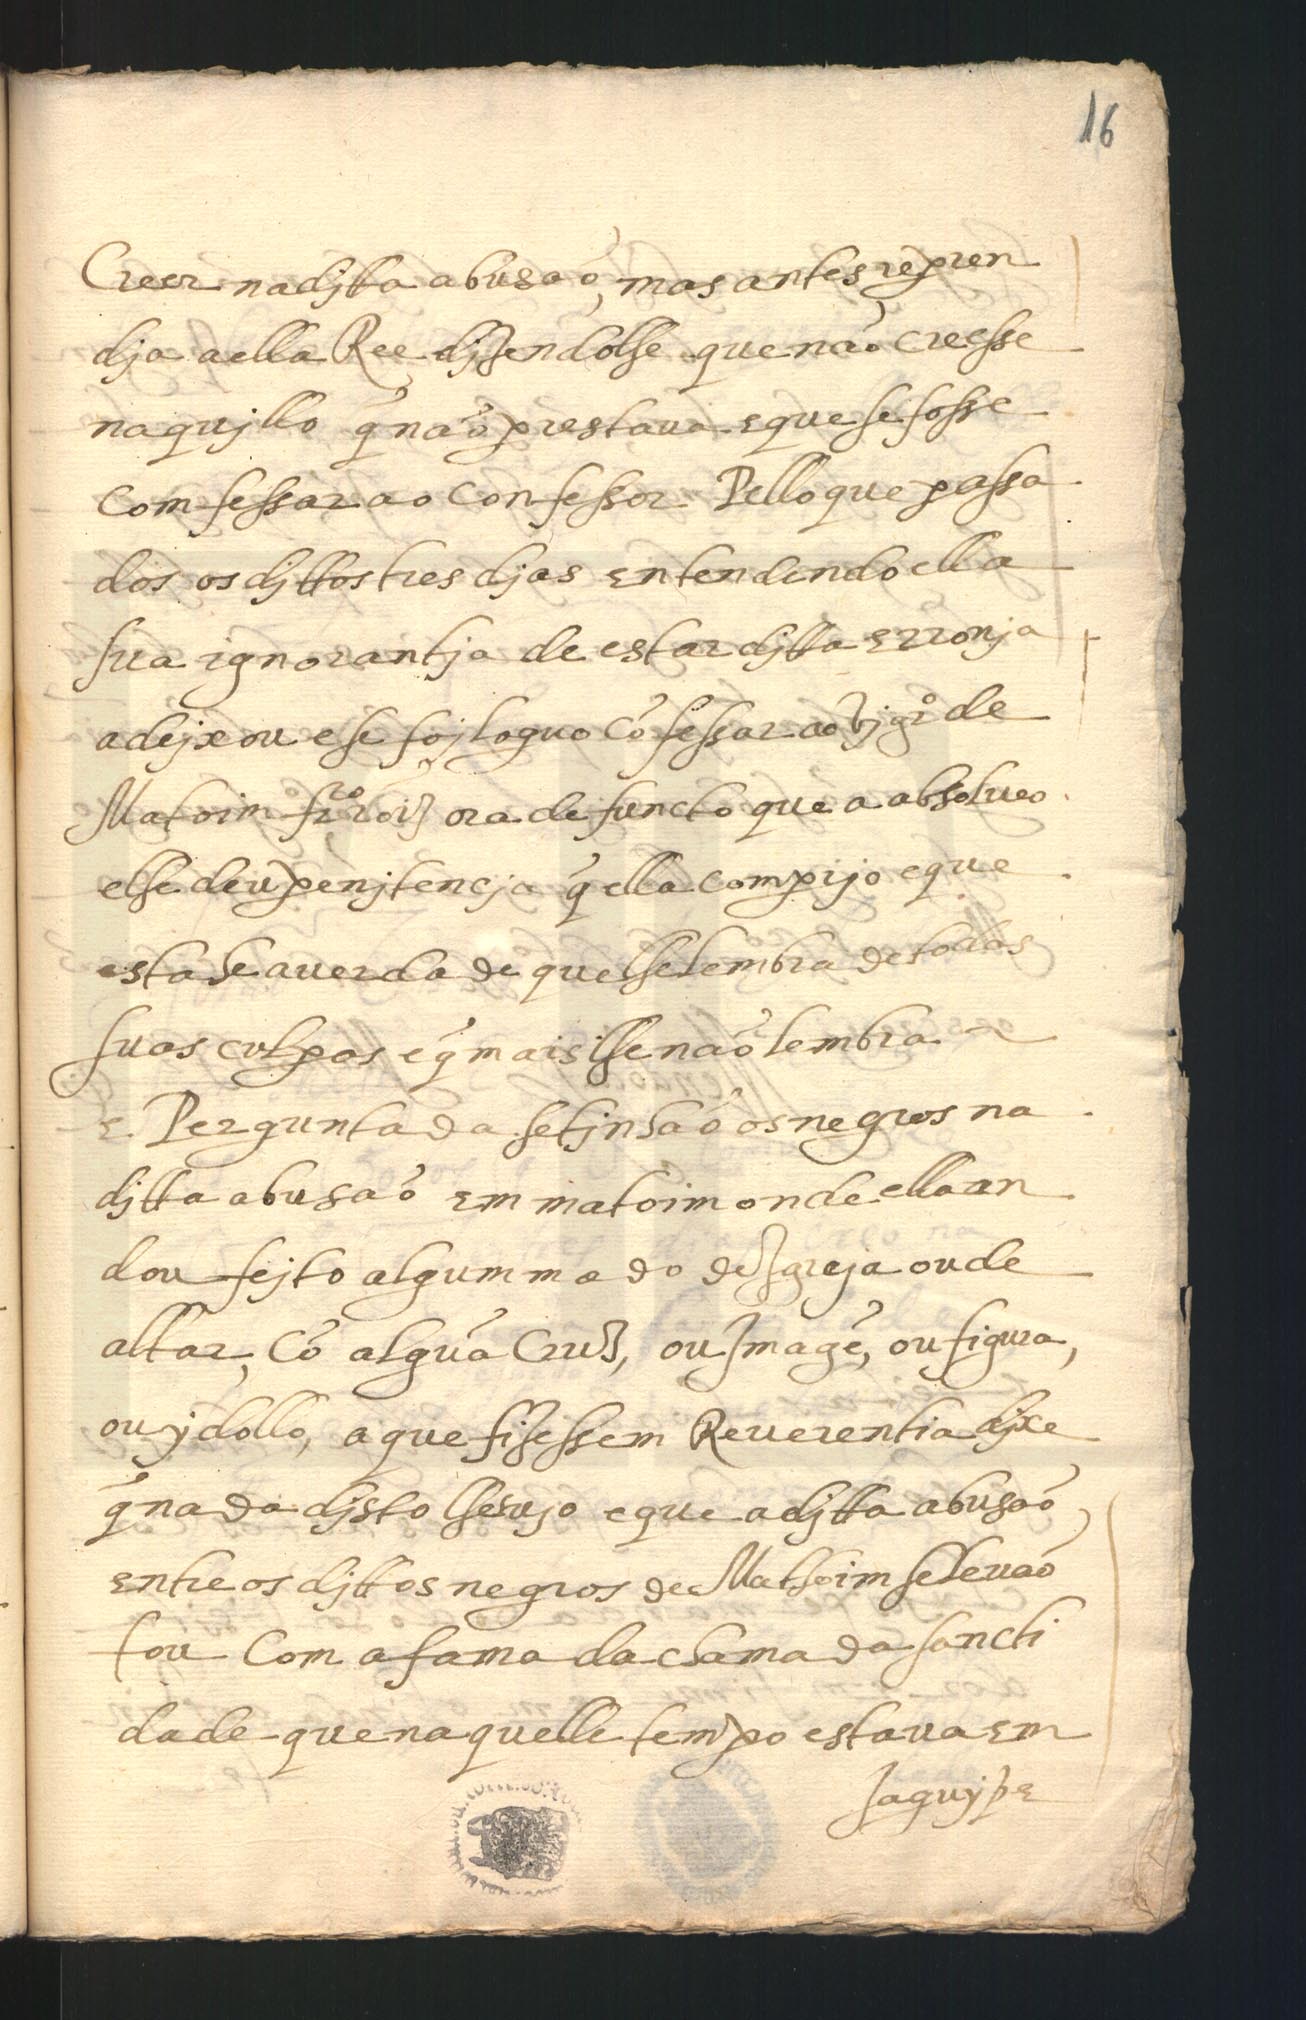 16
Creer na djtta abusaõ, mas antes repren
dja a ella Ree djzendolhe que naõ creesse
naquyllo q̃ naõ prestaua e que se fosse
comfessar ao confessor. Pello que passa
dos os djttos tres djas entendendo ella
sua ignorantja de estar djtta erronja
a dejxou e se foj loguo cõfessar ao vjgrº de
Matoim frº roiz ora defuncto que a absolueo
e lhe deu penjtencja q̃ ella comprijo e que
esta he a uerdade que lhe lembra de todas
suas culpas e q̃ mais lhe naõ lembra
e Perguntada se tjnhaõ os negros na
djtta abusaõ em matoim onde ella an
dou fejto algum modo de Igreja ou de
altar, cõ algũa Cruz, ou Imagẽ, ou figura,
ou ydollo, a que fizessem Reuerentia djxe
q̃ nada djsto lhe vjo e que a djtta abusaõ
entre os djttos negros de Mathoim se leuaõ
tou com a fama da chamada sancti
dade que naquelle tempo estaua em
Jaguype